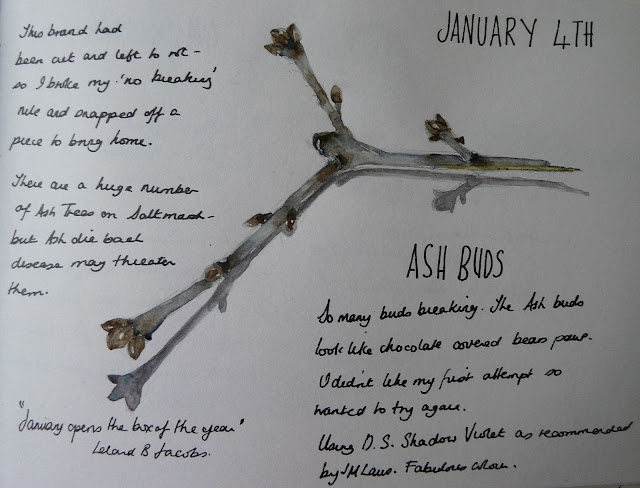 JANUARY 4TH
This brand had
been cut and left to rot -
so I broke my 'no breaking'
rule and snapped off a
piece to bring home.
There are a huge number
of Ash Trees on Saltmarsh -
but Ash die back
disease may threaten
them.
"January opens the box of the year"
Leland B Jacobs.
ASH BUDS
So many buds breaking. The Ash buds
look like chocolate covered bears paws.
I didn't like my first attempt so
wanted to try again.
Using D.S. Shadow Violet as recommended
by JM Laws. Fabulous colour.